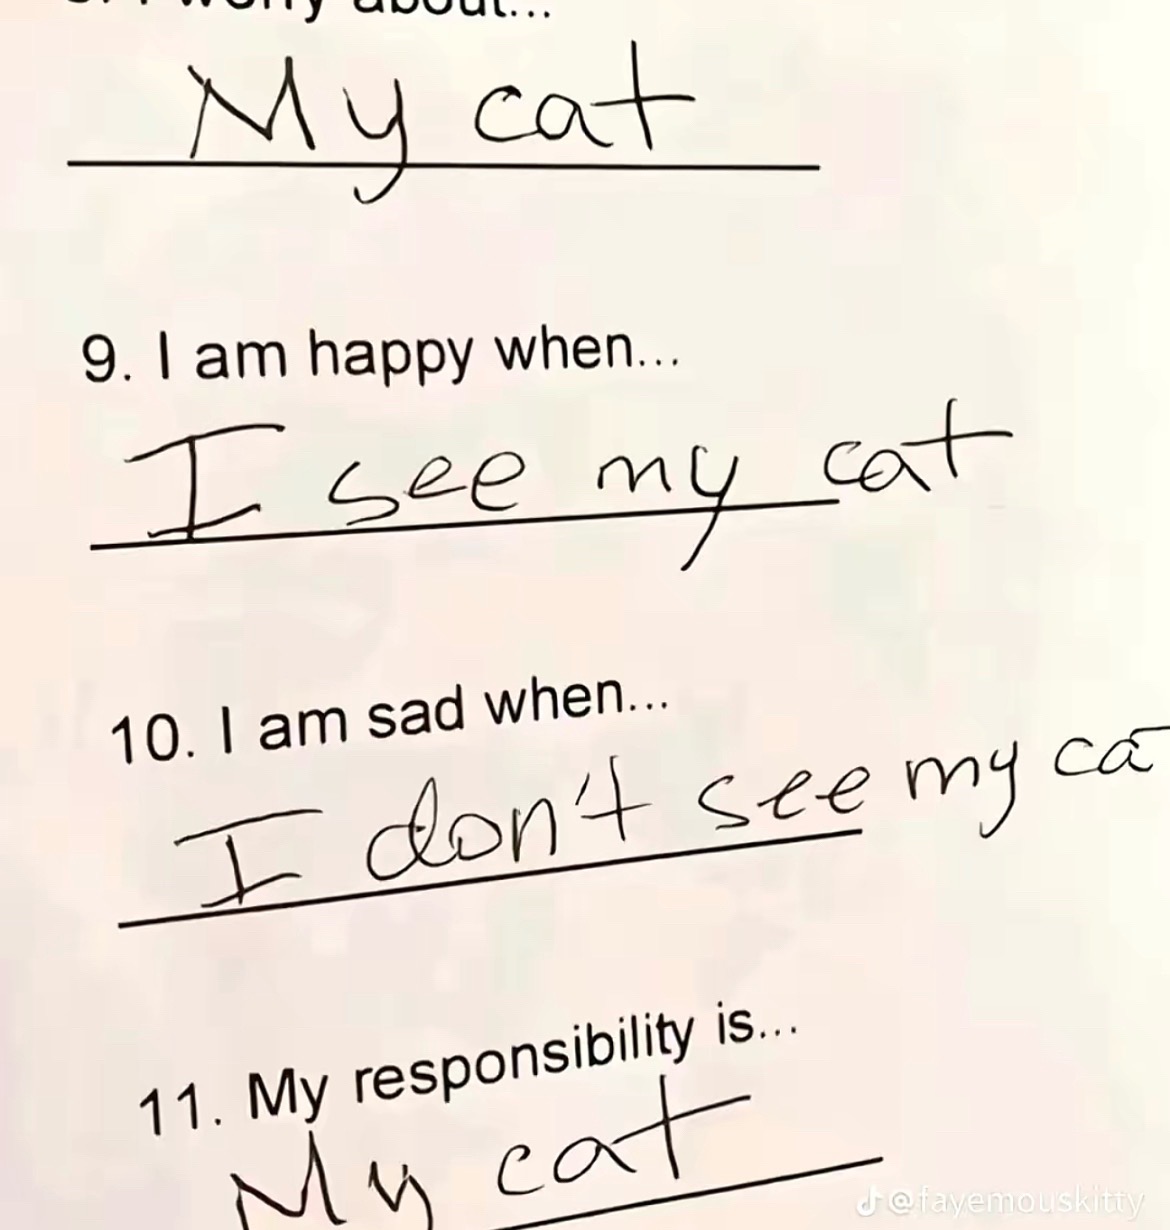 I worry about...
My cat
9. I am happy when...
I see my cat
10. I am sad when...
I don't see my ca
11. My responsibility is...
My cat
@fayemouskitty